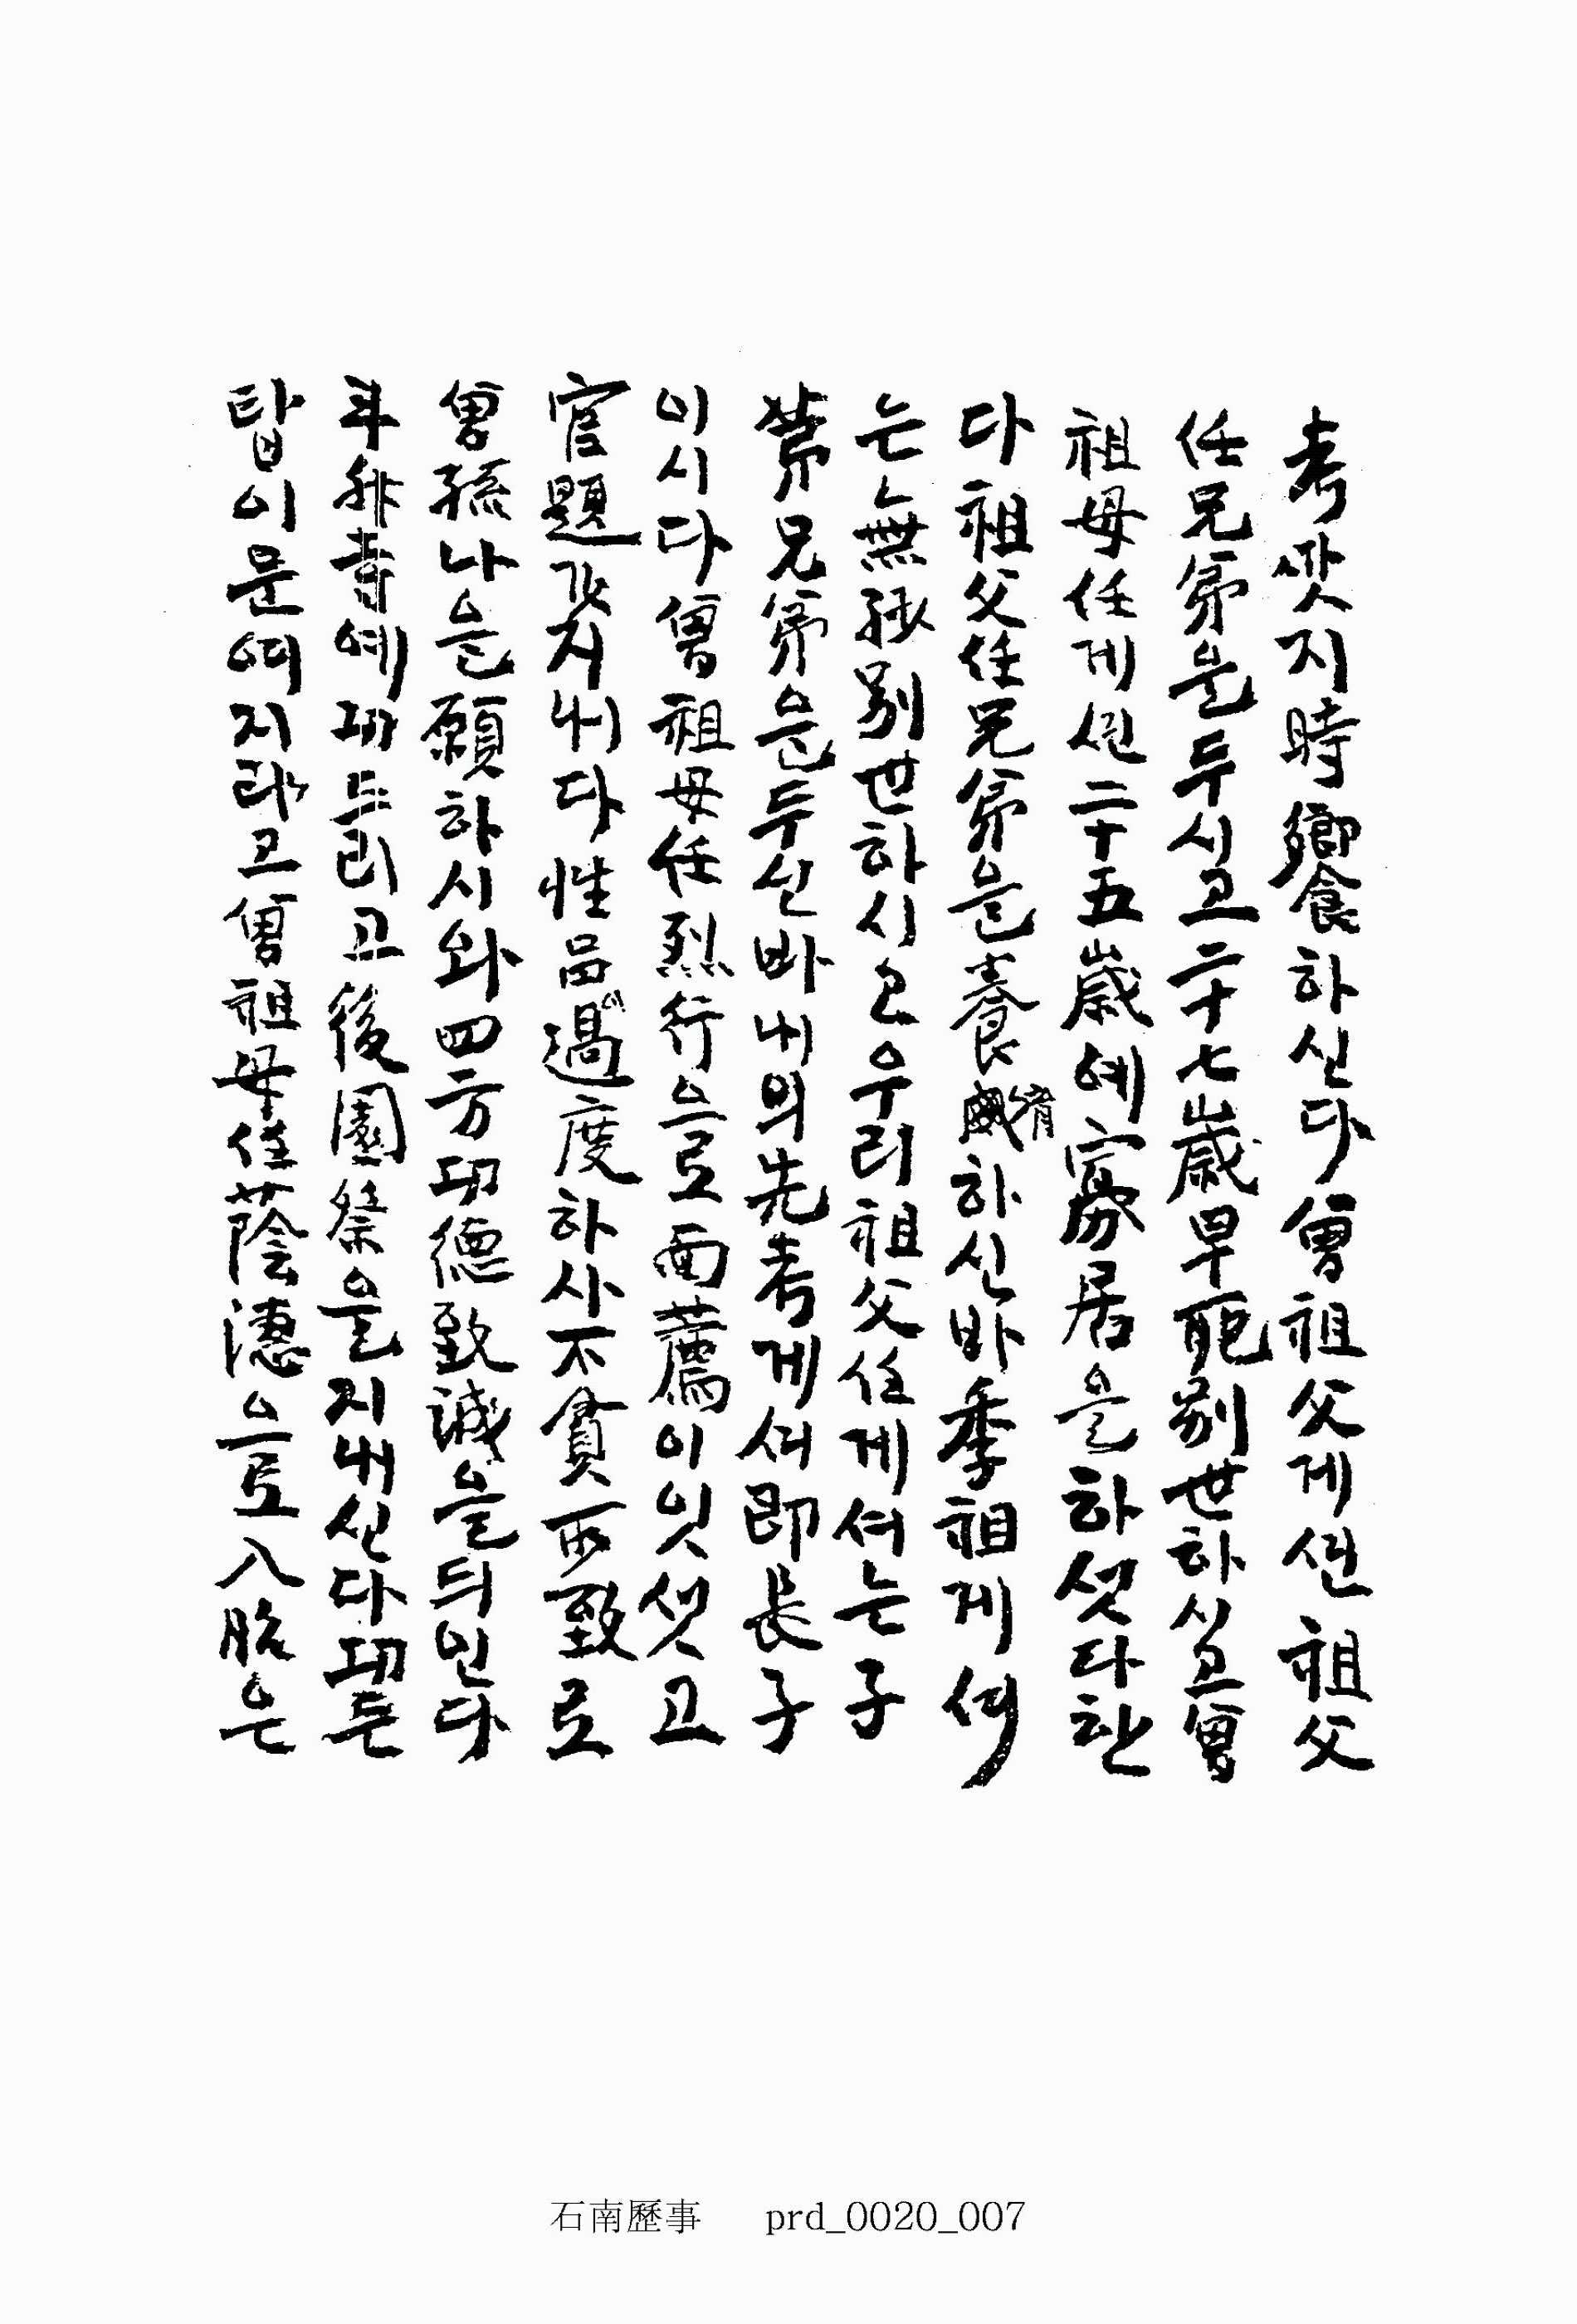 考ᄭᅡᆺ지時饗하신다曾祖父게션祖父
任兄弟을두시고二十七歲早死別世하시고曾
祖母任게션二十五歲에寡居을하셧다한
다祖父任兄弟을養育하신바季祖게셔
는無孫別世하시고우리祖父任게셔는子
第兄弟을두신바내의先考게셔即長子
이시다曾祖母任烈行으로面薦이잇셧고
官題ᄭᅡ지내다性品이過度하사不貧所致로
曾孫나을願하시와四方功德致誠을듸인다
斗非寺에功드리고後園祭을지내신다功든
탑이문여지라고曾祖母任蔭德으로入胎은
石南歷事 prd_0020_007